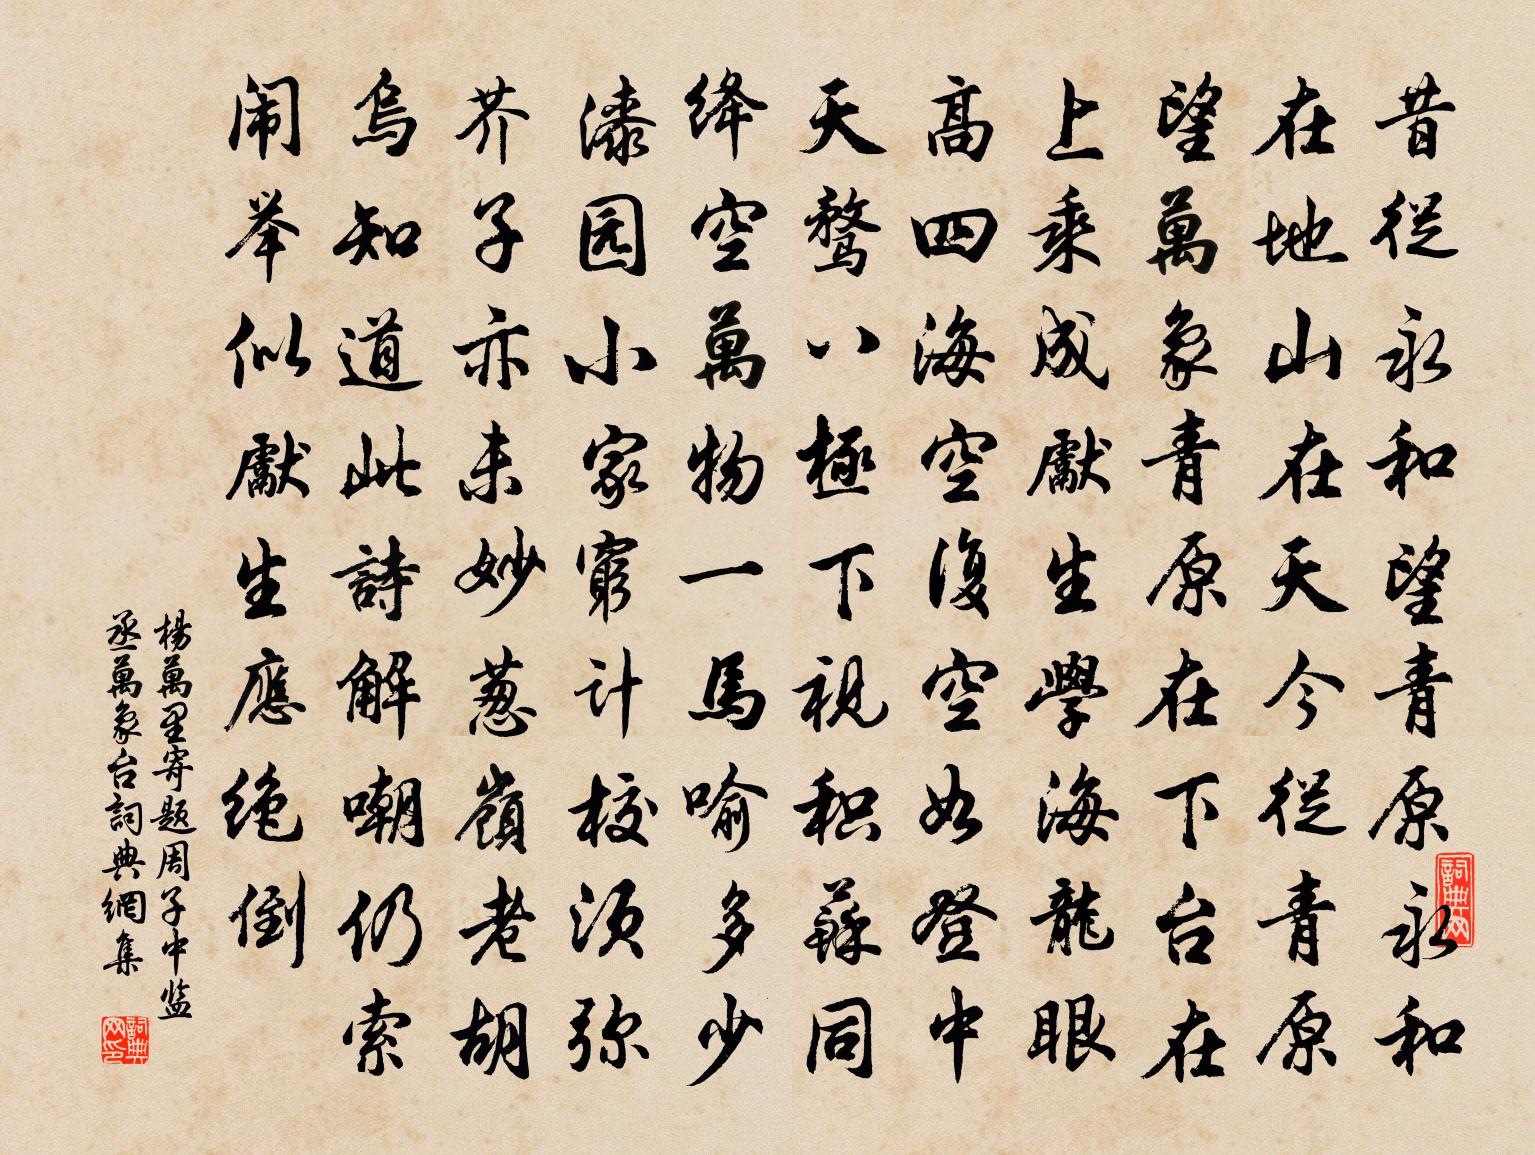 昔從永和望青原永和
在地山在天今從青原
望萬象青原在下台在
上乘成獻生學海龍眼
高四海空復空如登中
天骛八極下視积蘇同
绛空萬物一馬喻多少
漆园小家窮计校须弥
芥子亦未妙葱嶺老胡
烏知道此詩解嘲仍索
闹举似獻生應绝倒
楊萬里寄题周子中监
丞萬象台詞典網集
詞典网
詞典网印